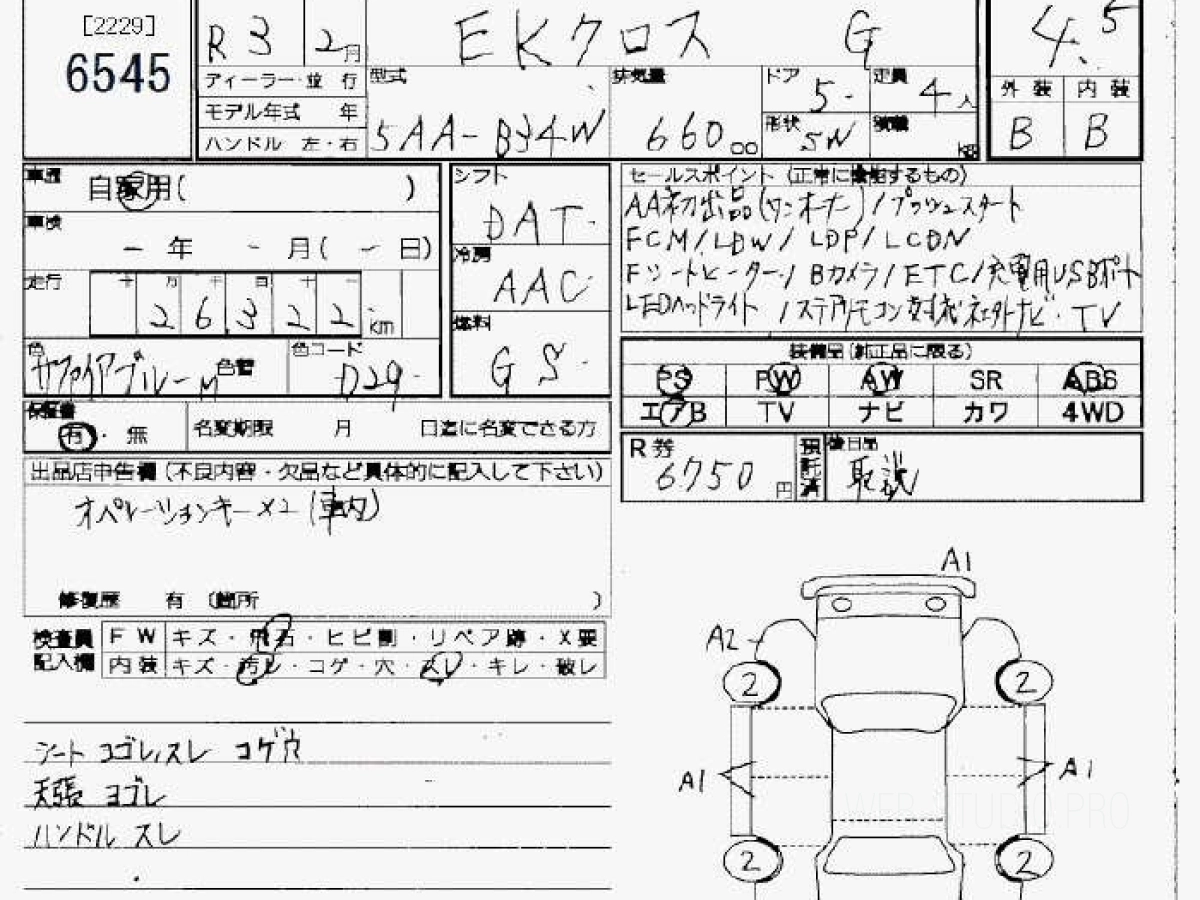 [2229]
6545
R 3 2月
EKクロス G
4.5
ディーラー・並行
モデル年式 年
ハンドル 左・右
型式
5AA-B34W
排気量
660 cc
ドア 5
定員 4人
形状 5W
積載 kg
外装 内装
B B
車歴 自家用( )
車検 － 年 － 月( － 日)
走行 十 万 千 百 十 一
2 6 3 2 2 km
色 サファイアブルーM 色替
色コード D29
シフト
DAT
冷房
AAC
燃料
GS
セールスポイント (正常に機能するもの)
AA初出品(ワンオーナー)/プッシュスタート
FCM/LDW/LDP/LCDN
Fシートヒーター/Bカメラ/ETC/充電用USBポート
LEDヘッドライト/ステアリモコン対応社外ナビ・TV
装備品(純正品に限る)
PS PW AW SR ABS
エアB TV ナビ カワ 4WD
保証書
有・無
名変期限 月 日迄に名変できる方
R券
6750 円
預託済
後日品
取説
出品店申告欄(不良内容・欠品など具体的に記入して下さい)
オペレーションキー×2 (車内)
修復歴 有 (箇所 )
検査員記入欄
FW キズ・飛石・ヒビ割・リペア跡・X要
内装 キズ・汚レ・コゲ・穴・スレ・キレ・破レ
シート ヨゴレ、スレ コゲ穴
天張 ヨゴレ
ハンドル スレ
A1
A2
2 2
A1 A1
2 2
WEB STUDIO PRO